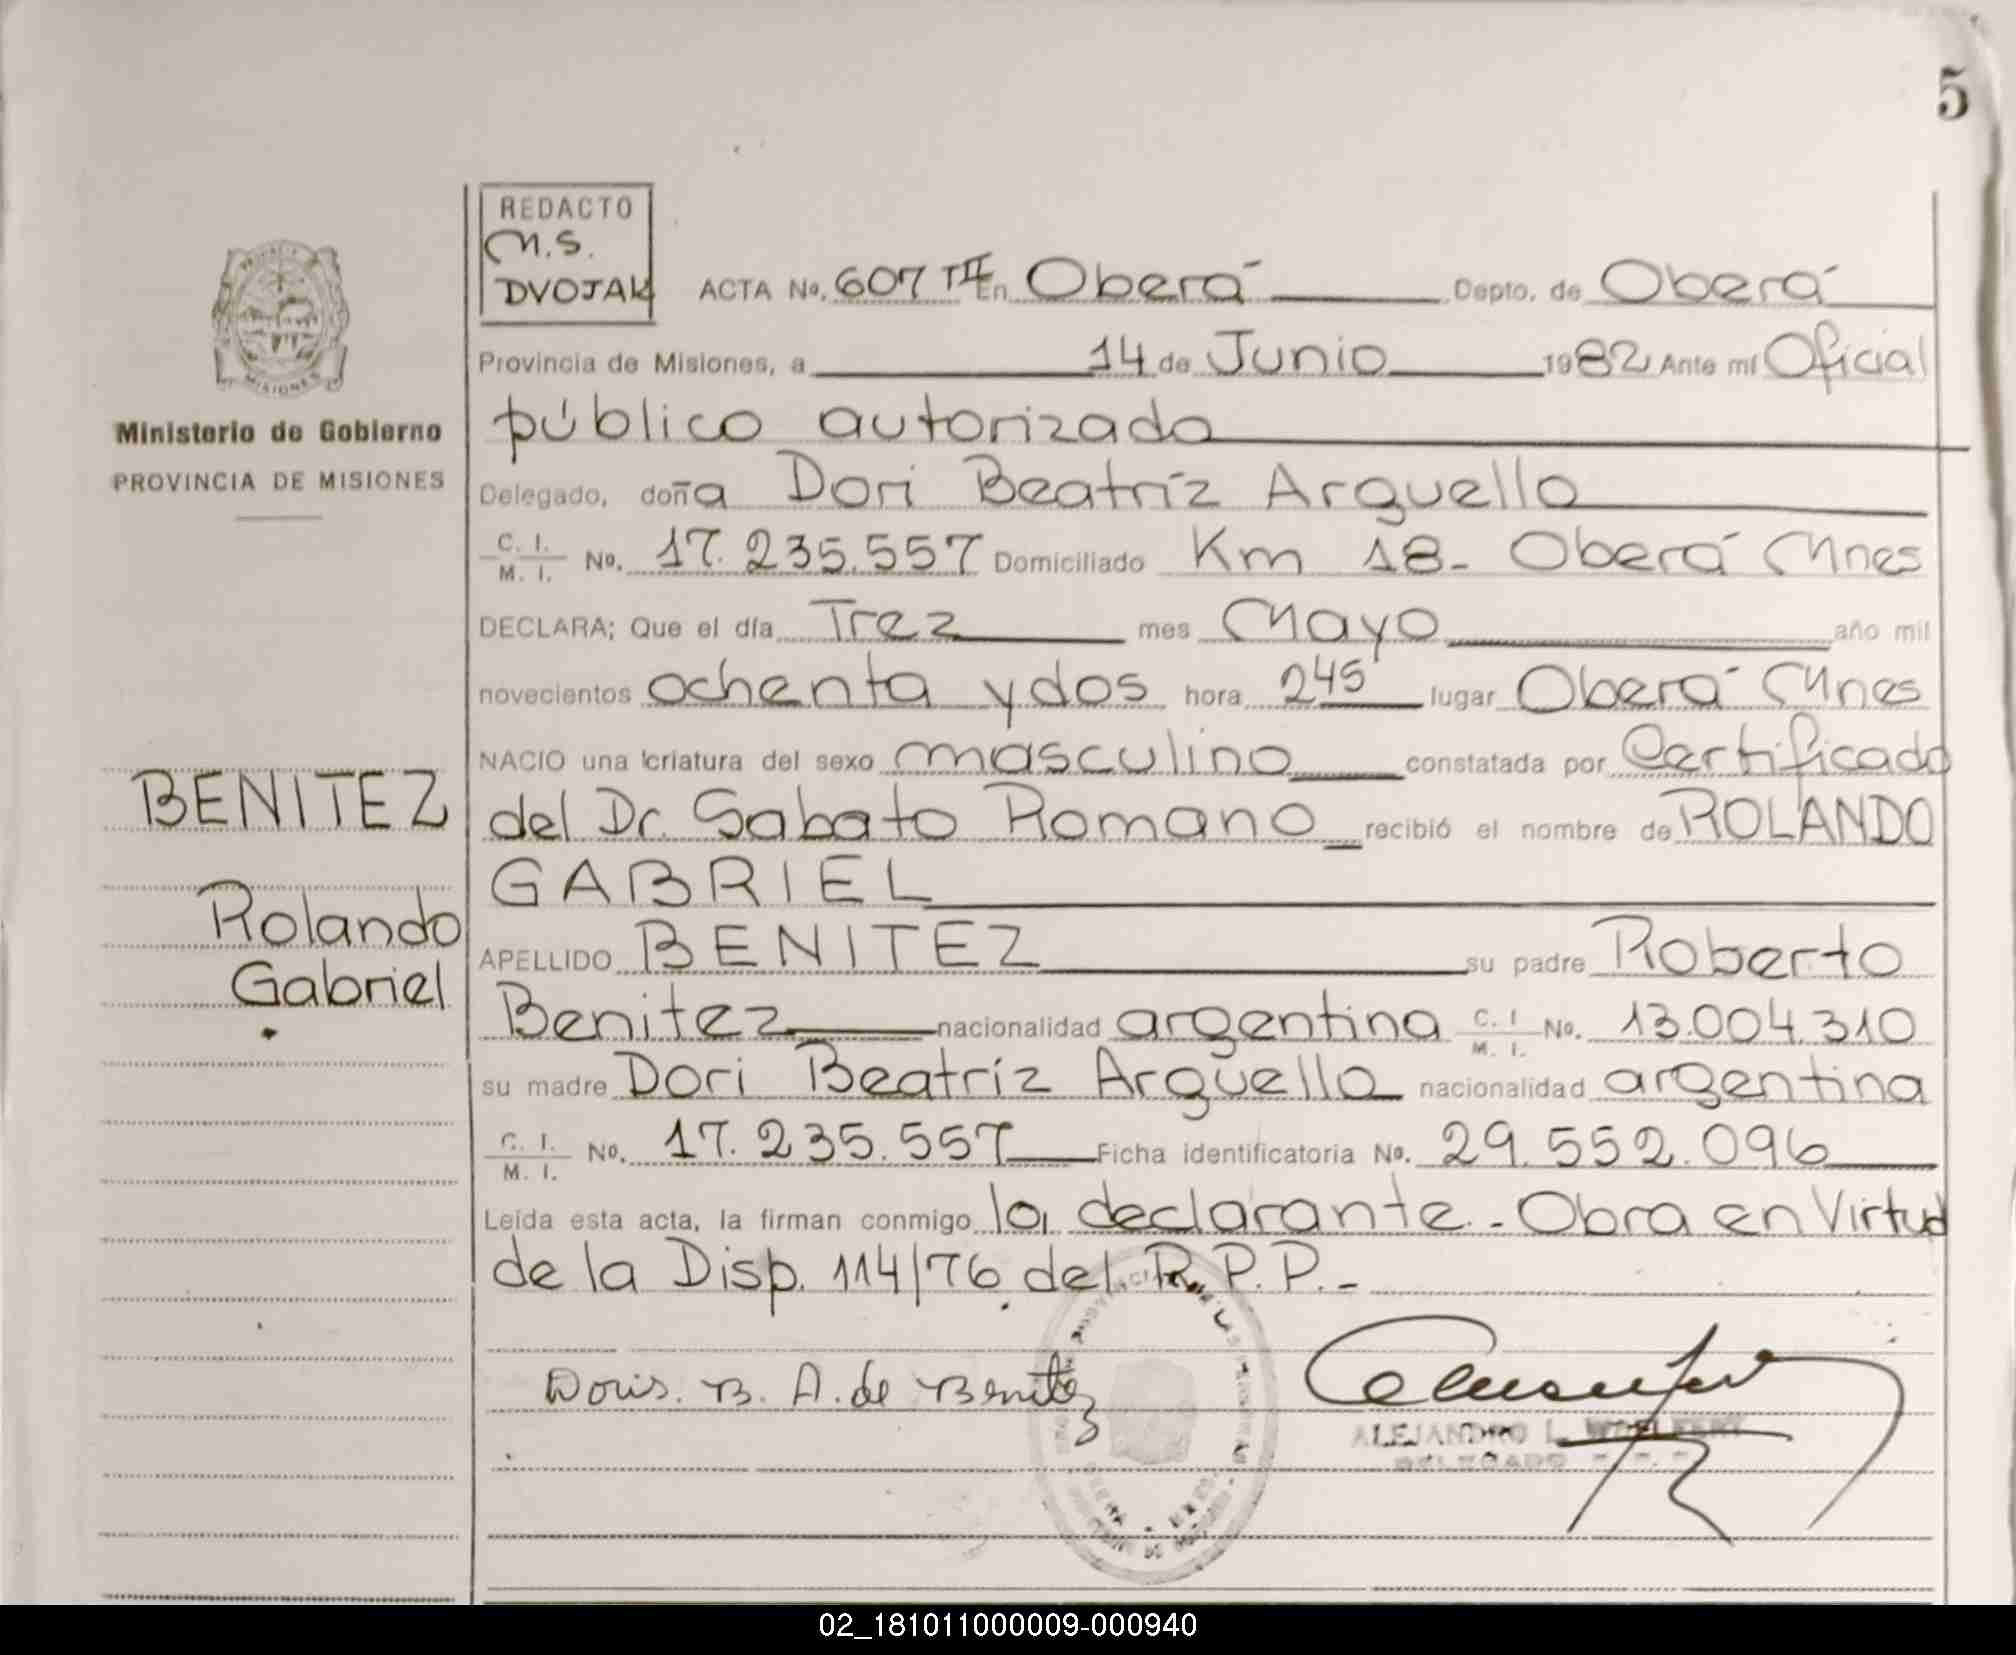 5
REDACTO
M.S.
DVOJAK
ACTA No. 607 TII En Oberá Depto. de Oberá
Provincia de Misiones, a 14 de Junio 1982 Ante mí Oficial
público autorizado
Delegado, doña Dori Beatríz Arguello
C. I. / M. I. No. 17.235.557 Domiciliado Km 18- Oberá Mnes
DECLARA; Que el día Trez mes Mayo año mil
novecientos ochenta y dos hora 245' lugar Oberá Mnes
NACIO una criatura del sexo masculino constatada por Certificado
del Dr. Sabato Romano recibió el nombre de ROLANDO
GABRIEL
APELLIDO BENITEZ su padre Roberto
Benitez nacionalidad argentina C. I. / M. I. No. 13.004.310
su madre Dori Beatríz Arguello nacionalidad argentina
C. I. / M. I. No. 17.235.557 Ficha identificatoria No. 29.552.096
Leída esta acta, la firman conmigo la declarante.- Obra en Virtud
de la Disp. 114/76 del R.P.P.-
Doris. B. A. de Benitez
ALEJANDRO L.
DELEGADO
MISIONES
Ministerio de Gobierno
PROVINCIA DE MISIONES
BENITEZ
Rolando
Gabriel
02_181011000009-000940